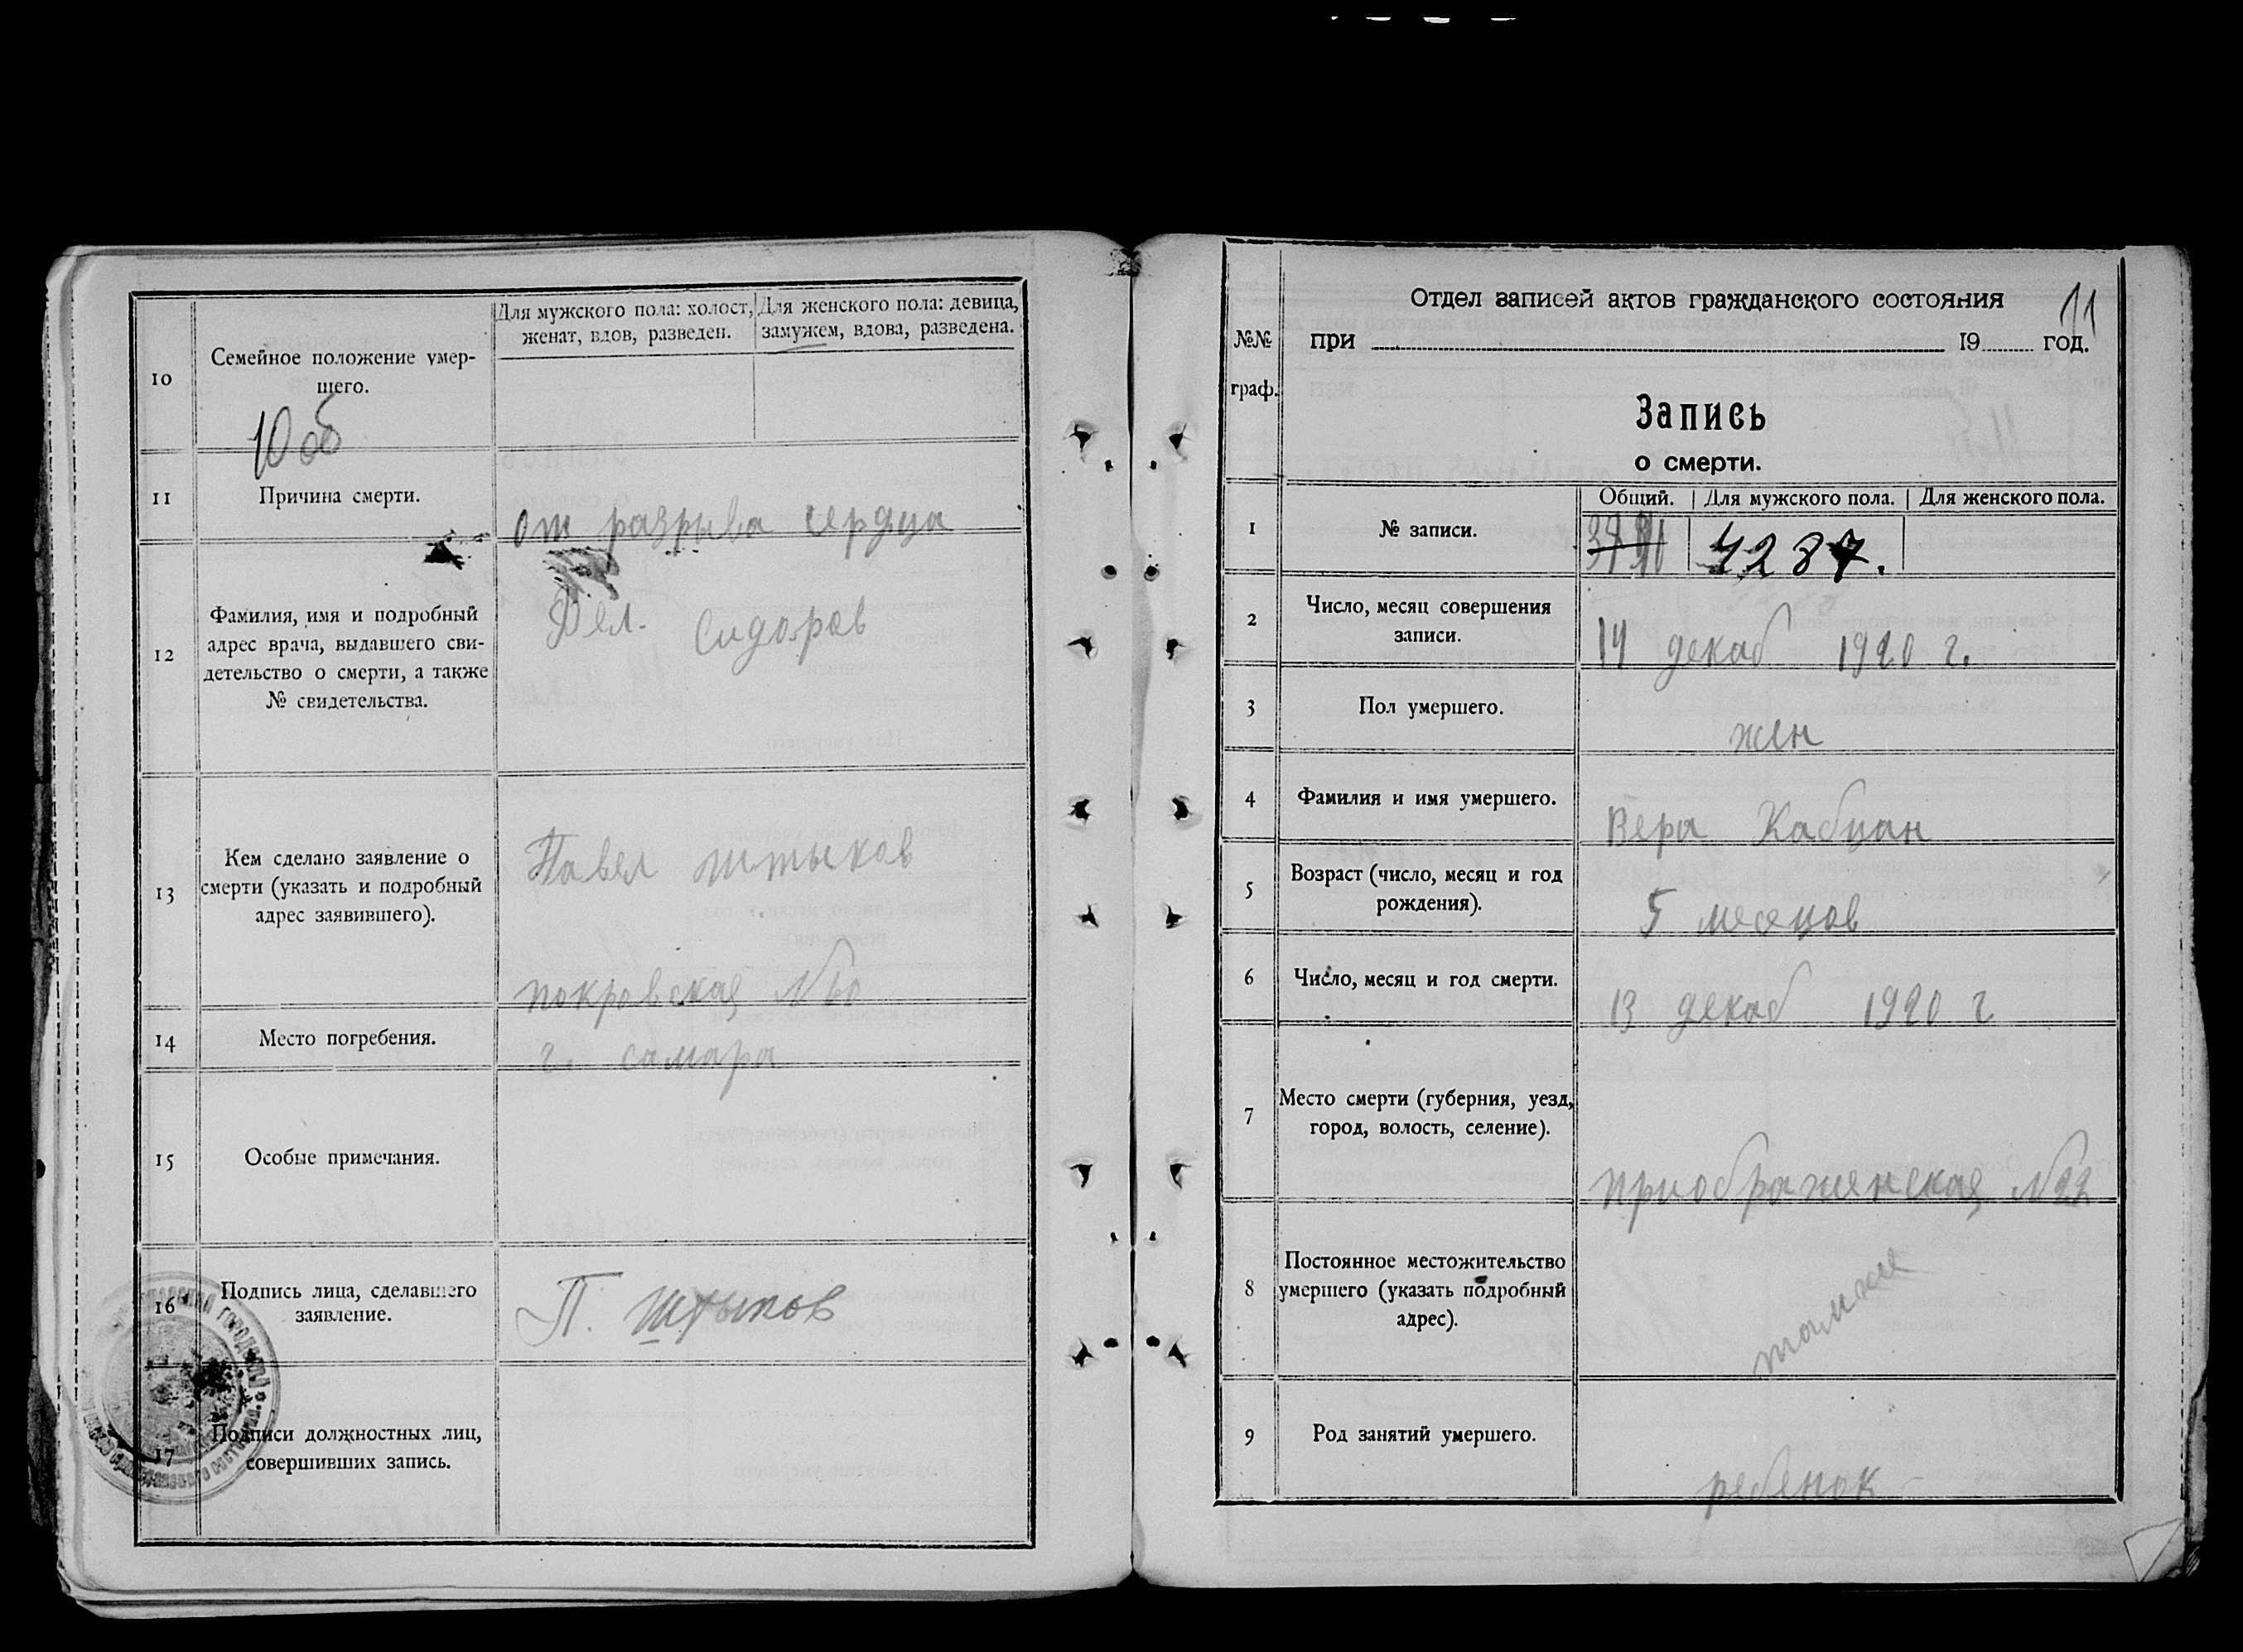 10
Семейное положение умер-
шего.
Для мужского пола: холост,
женат, вдов, разведен.
Для женского пола: девица,
замужем, вдова, разведена.
10 об
11
Причина смерти.
от разрыва сердца
12
Фамилия, имя и подробный
адрес врача, выдавшего сви-
детельство о смерти, а также
№ свидетельства.
Сидоров
13
Кем сделано заявление о
смерти (указать и подробный
адрес заявившего).
Павел штыков
покровская №60
14
Место погребения.
г. самара
15
Особые примечания.
16
Подпись лица, сделавшего
заявление.
П. Штыков
17
Подписи должностных лиц,
совершивших запись.
11
№№
граф.
Отдел записей актов гражданского состояния
при 19 год.
Запись
о смерти.
Общий. Для мужского пола. Для женского пола.
1
№ записи.
4287.
2
Число, месяц совершения
записи.
14 декаб 1920 г.
3
Пол умершего.
жен
4
Фамилия и имя умершего.
Вера Кабцан
5
Возраст (число, месяц и год
рождения).
5 месецов
6
Число, месяц и год смерти.
13 декаб 1920 г
7
Место смерти (губерния, уезд,
город, волость, селение).
приображенская №22
8
Постоянное местожительство
умершего (указать подробный
адрес).
тамже
9
Род занятий умершего.
ребенок